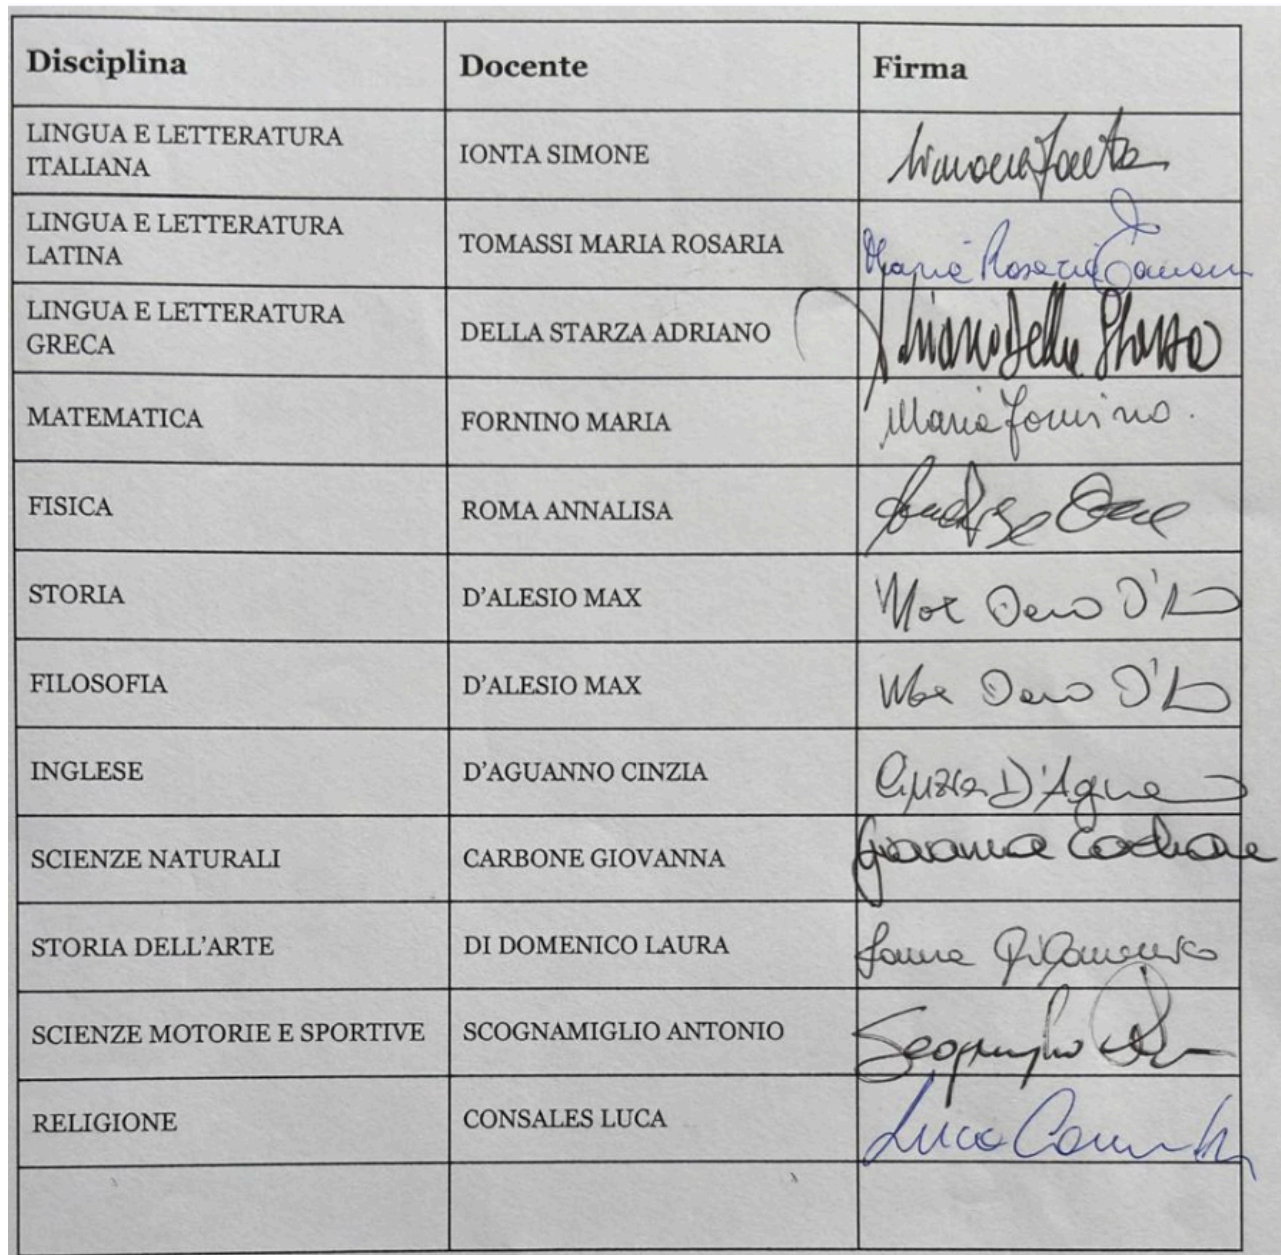 Disciplina Docente Firma
LINGUA E LETTERATURA
ITALIANA
IONTA SIMONE
LINGUA E LETTERATURA
LATINA
TOMASSI MARIA ROSARIA Maria Rosaria
LINGUA E LETTERATURA
GRECA
DELLA STARZA ADRIANO
MATEMATICA FORNINO MARIA Maria Fornino
FISICA ROMA ANNALISA
STORIA D'ALESIO MAX
FILOSOFIA D'ALESIO MAX
INGLESE D'AGUANNO CINZIA Cinzia
SCIENZE NATURALI CARBONE GIOVANNA Giovanna Carbone
STORIA DELL'ARTE DI DOMENICO LAURA Laura Di Domenico
SCIENZE MOTORIE E SPORTIVE SCOGNAMIGLIO ANTONIO
RELIGIONE CONSALES LUCA Luca